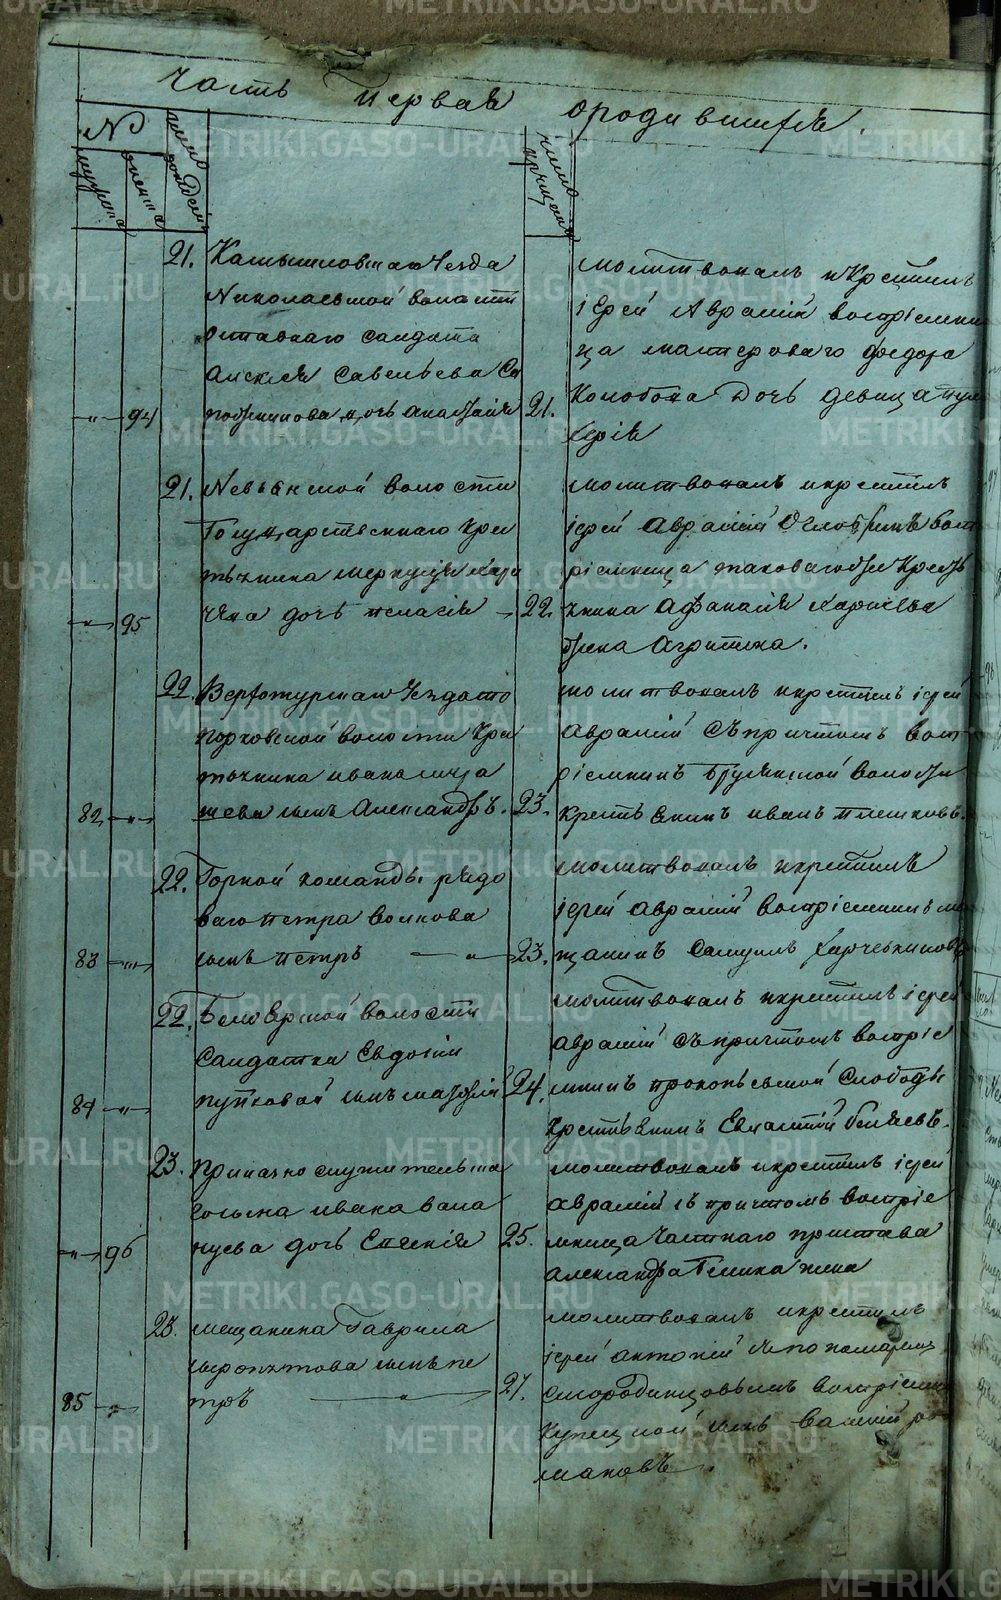 Часть Первая ородившихся.
№
мужеска
женска
число рождения
число крещения
21. Камышловскаго уезда
Николаевской волости
отставнаго салдата
Алексея Савельева Са
94 дочь Анастасия
21.
молитвовалъ и Крестилъ
іерей Аврамій воспріемни
ца мастероваго Федора
Колобова дочь девица Пуль
херія
21. Невьянской волости
Государственнаго Кре
стьянина Меркурия Хари
95 чева дочь Пелагія
22.
молитвовалъ икрестилъ
іерей Аврамій Оглоблинъ вос
ріемница таковагоже Кресть
янина Афанасия Харчева
жена Агрипина.
22. Верхотурскаго уезда то
порковской волости Кре
стьянина ивана
82 шева сынъ Александръ.
23.
молитвовалъ икрестилъ іерей
Аврамій съ причтомъ вос
ріемникъ Бруянской волости
Крестьянинъ иванъ Плешковъ.
22. Горной команды рядо
ваго Петра Волкова
83 сынъ Петръ
23.
молитвовалъ икрестилъ
іерей Аврамій воспріемникъ ме
щанинъ Самуилъ Харчевниковъ
22. Белоярской волости
Салдатки Евдокіи
84 пупковой сынъ
24.
молитвовалъ икрестилъ іерей
Аврамій съ причтомъ воспріе
мникъ прокопьевской слободы
Крестьянинъ Евлампій Беляевъ.
23. Приказно служительска
госына ивана вала
96 нцева дочь Евгенія
25.
молитвовалъ икрестилъ іерей
Аврамій съ причтомъ воспріе
мница Частнаго пристава
Александра жена
23. мещанина Гаврила
сыропятова сынъ пе
85 тръ
27.
молитвовалъ икрестилъ
іерей антоній съпономаремъ
Смородинцовымъ воспріемни
Купецкой сынъ Василій ро
мановъ.
METRIKI.GASO-URAL.RU